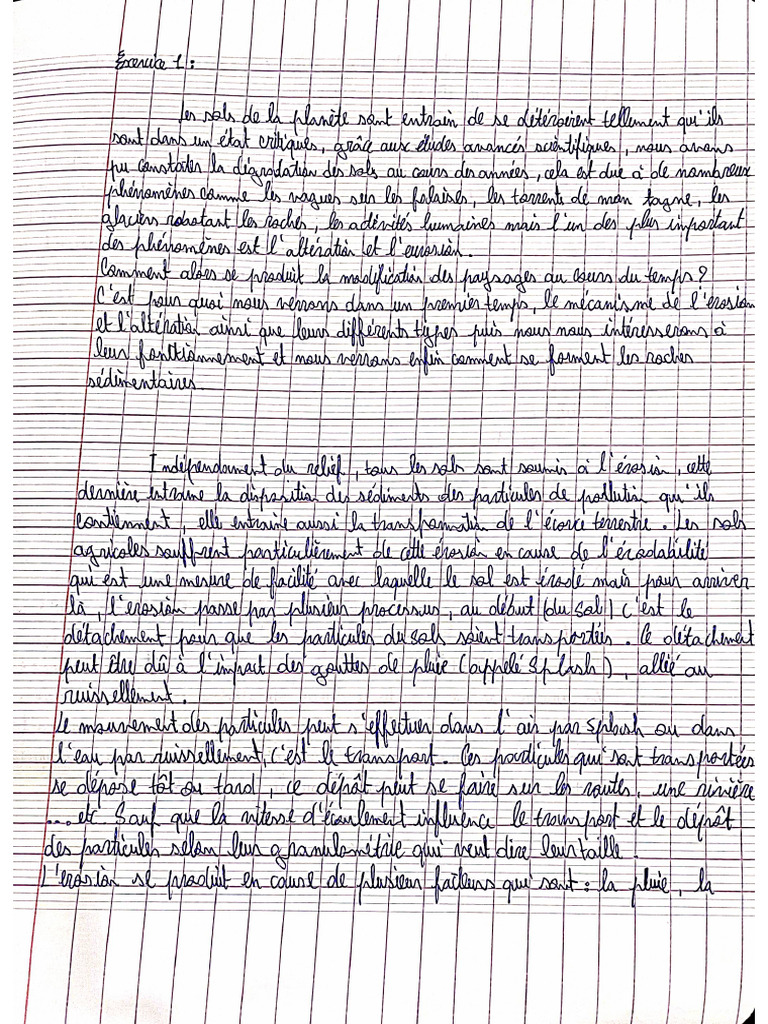 Exercice 1 :
Les sols de la planète sont entrain de se détéroirent tellement qu'ils
sont dans un état critiques, grâce aux études avancés scientifiques, nous avons
pu constater la dégradation des sols au cours des années, cela est due à de nombreux
phénomènes comme les vagues sur les falaises, les torrents de mon tagne, les
glaciers rabotant les roches, les activités humaines mais l'un des plus important
des phénomènes est l'altération et l'eurosion.
Comment alors se produit la modification des paysages au cours du temps ?
C'est pour quoi nous verrons dans un premier temps, le mécanisme de l'érosion
et l'altération ainsi que leurs différents types puis nous nous intéresserons à
leur fonctionnement et nous verrons enfin comment se forment les roches
sédimentaires.
Indépendament du relief, tous les sols sont soumis à l'érosion, cette
dernière entraine la disposition des sédiments des particules de pollution qu'ils
contiennent, elle entraine aussi la transformation de l'écorce terrestre. Les sols
agricoles souffrent particulièrement de cette érosion en cause de l'érodabilité
qui est une mesure de facilité avec laquelle le sol est érodé mais pour arriver
là, l'erosion passe par plusieur processus, au début (du sol) c'est le
détachement pour que les particules du sols soient transportés. Ce détachement
peut être dû à l'impact des gouttes de pluie (appelé Splash), allié au
ruissellement.
Le mouvement des particules peut s'effectuer dans l'air par Splash ou dans
l'eau par ruissellement, c'est le transport. Ces particules qui sont transportées
se dépose tôt ou tard, ce dépôt peut se faire sur les routs, une rivière
....etc. Sauf que la vitesse d'écoulement influence le transport et le dépôt
des particules selon leur granulométrie qui veut dire leur taille.
L'erosion se produit en cause de plusieur facteurs qui sont : la pluie, la